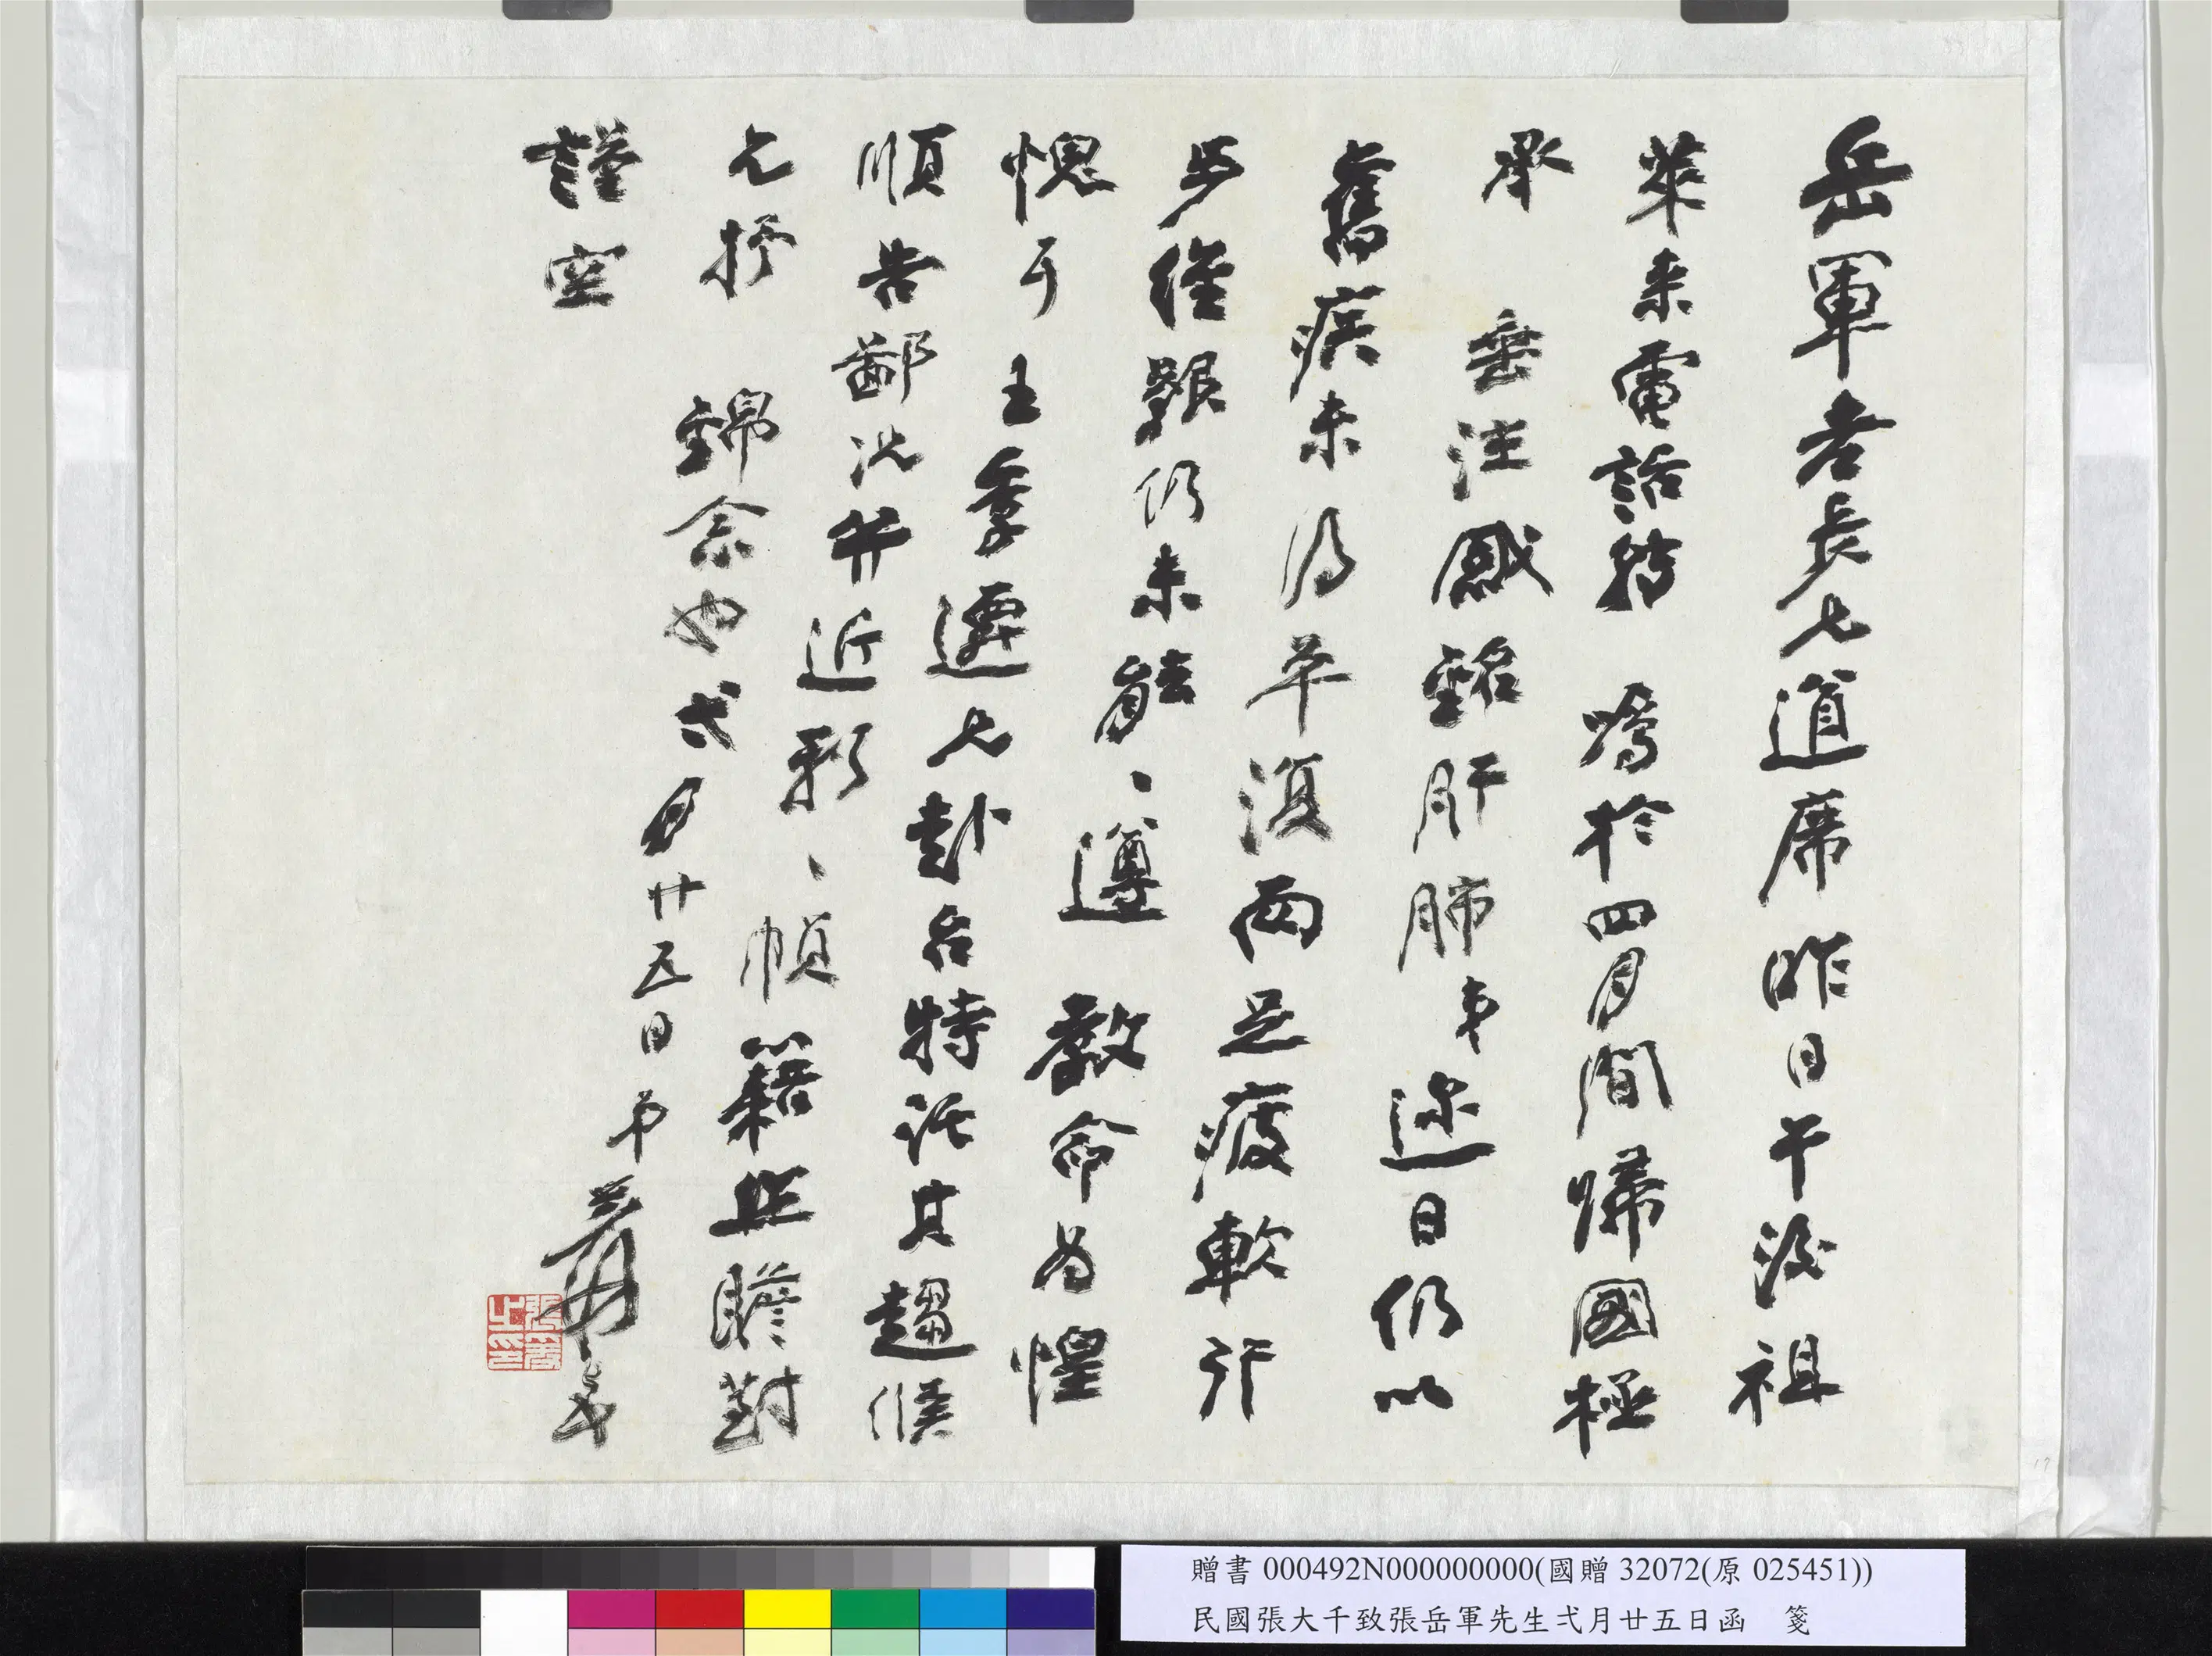 岳軍老長兄道席昨日午後祖
萊來電話轉　囑於四月間歸國極
承　垂注感銘肝肺弟邇日仍以
舊疾未得平復兩足疲軟行
步維艱仍未能、遵　教命為惶
愧于主季遷兄赴台特託其趨候
順告鄙況并近影、幀藉與瞻對
尤抒　錦念也弍月廿五日弟爰美
謹空
張爰之印
贈書 000492N000000000(國贈 32072(原 025451))
民國張大千致張岳軍先生弍月廿五日函　箋